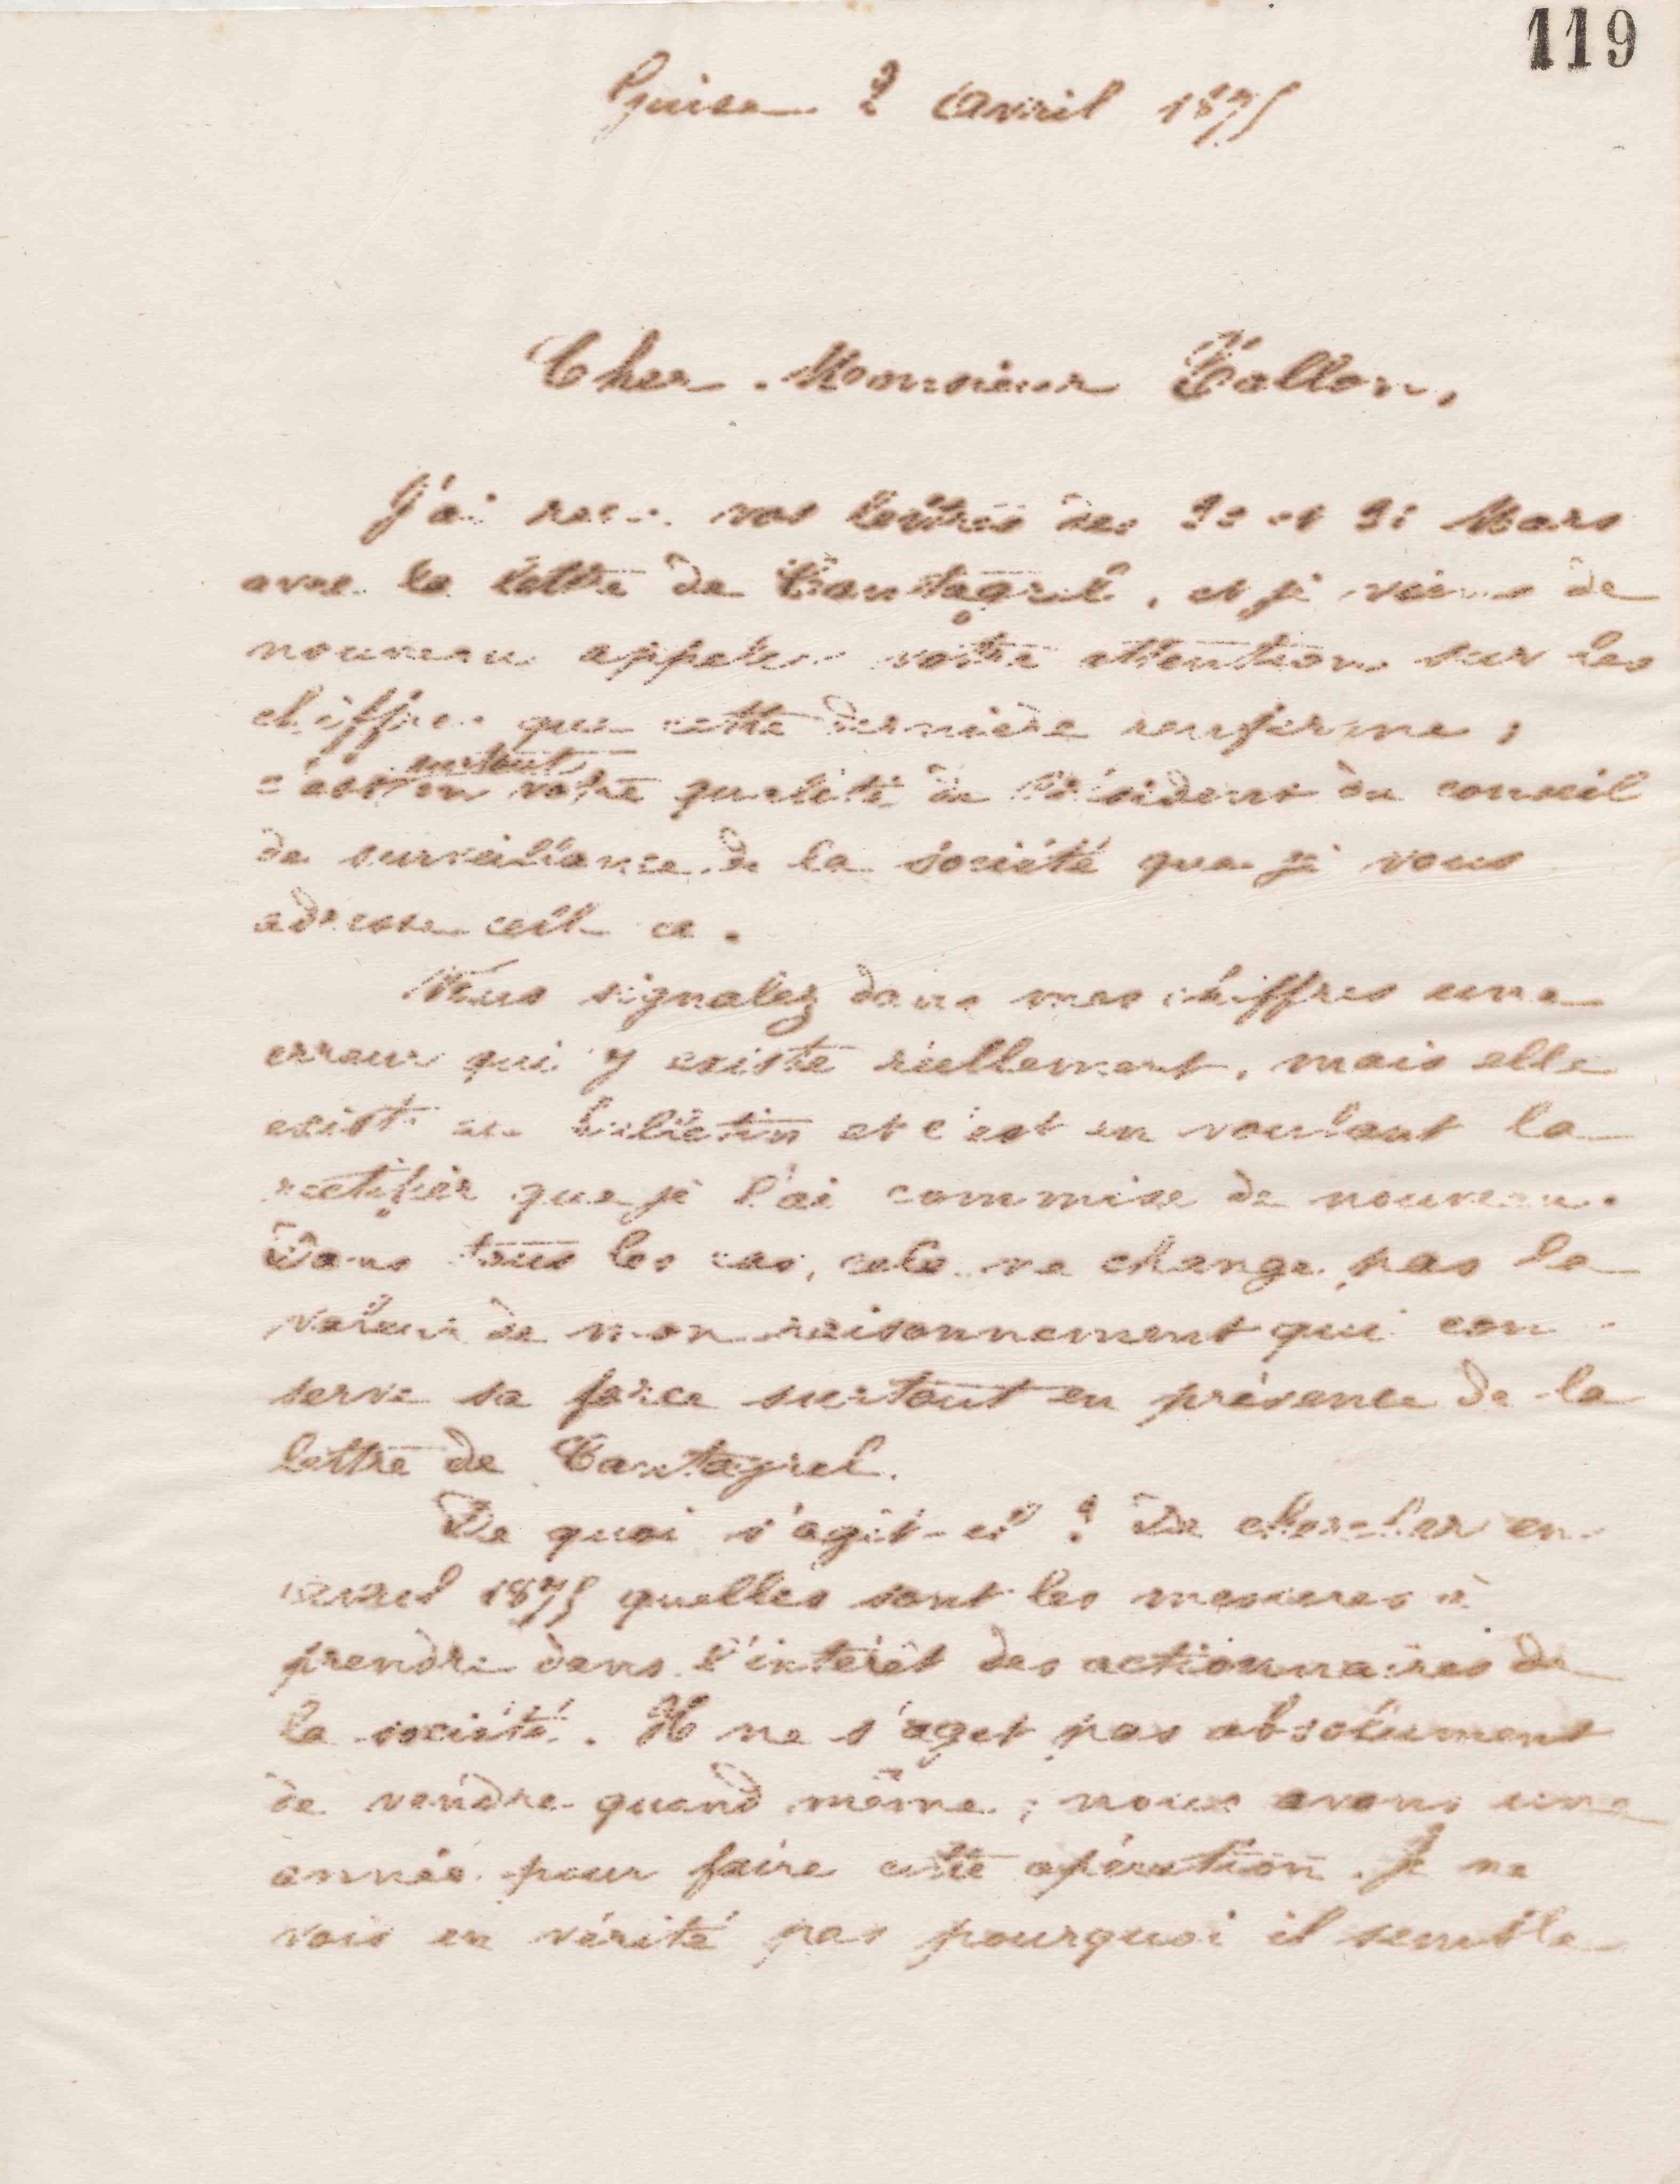 119
Guise 2 Avril 1875
Cher Monsieur Tallon,
J'ai reçu vos lettres des 30 et 31 Mars
avec la lettre de Cantagrel, et je viens de
nouveau appeler votre attention sur les
chiffres que cette dernière renferme;
surtout
c'est en votre qualité de Président du conseil
de surveillance de la société que je vous
adresse cela.
Vous signalez dans mes chiffres une
erreur qui y existe réellement, mais elle
existe au bulletin et c'est en voulant la
rectifier que je l'ai commise de nouveau.
Dans tous les cas, cela ne change pas la
valeur de mon raisonnement qui con-
serve sa force surtout en présence de la
lettre de Cantagrel.
De quoi s'agit-il ? De chercher en
avril 1875 quelles sont les mesures à
prendre dans l'intérêt des actionnaires de
la société. Il ne s'agit pas absolument
de vendre quand même ; nous avons une
année pour faire cette opération. Je ne
vois en vérité pas pourquoi il semble